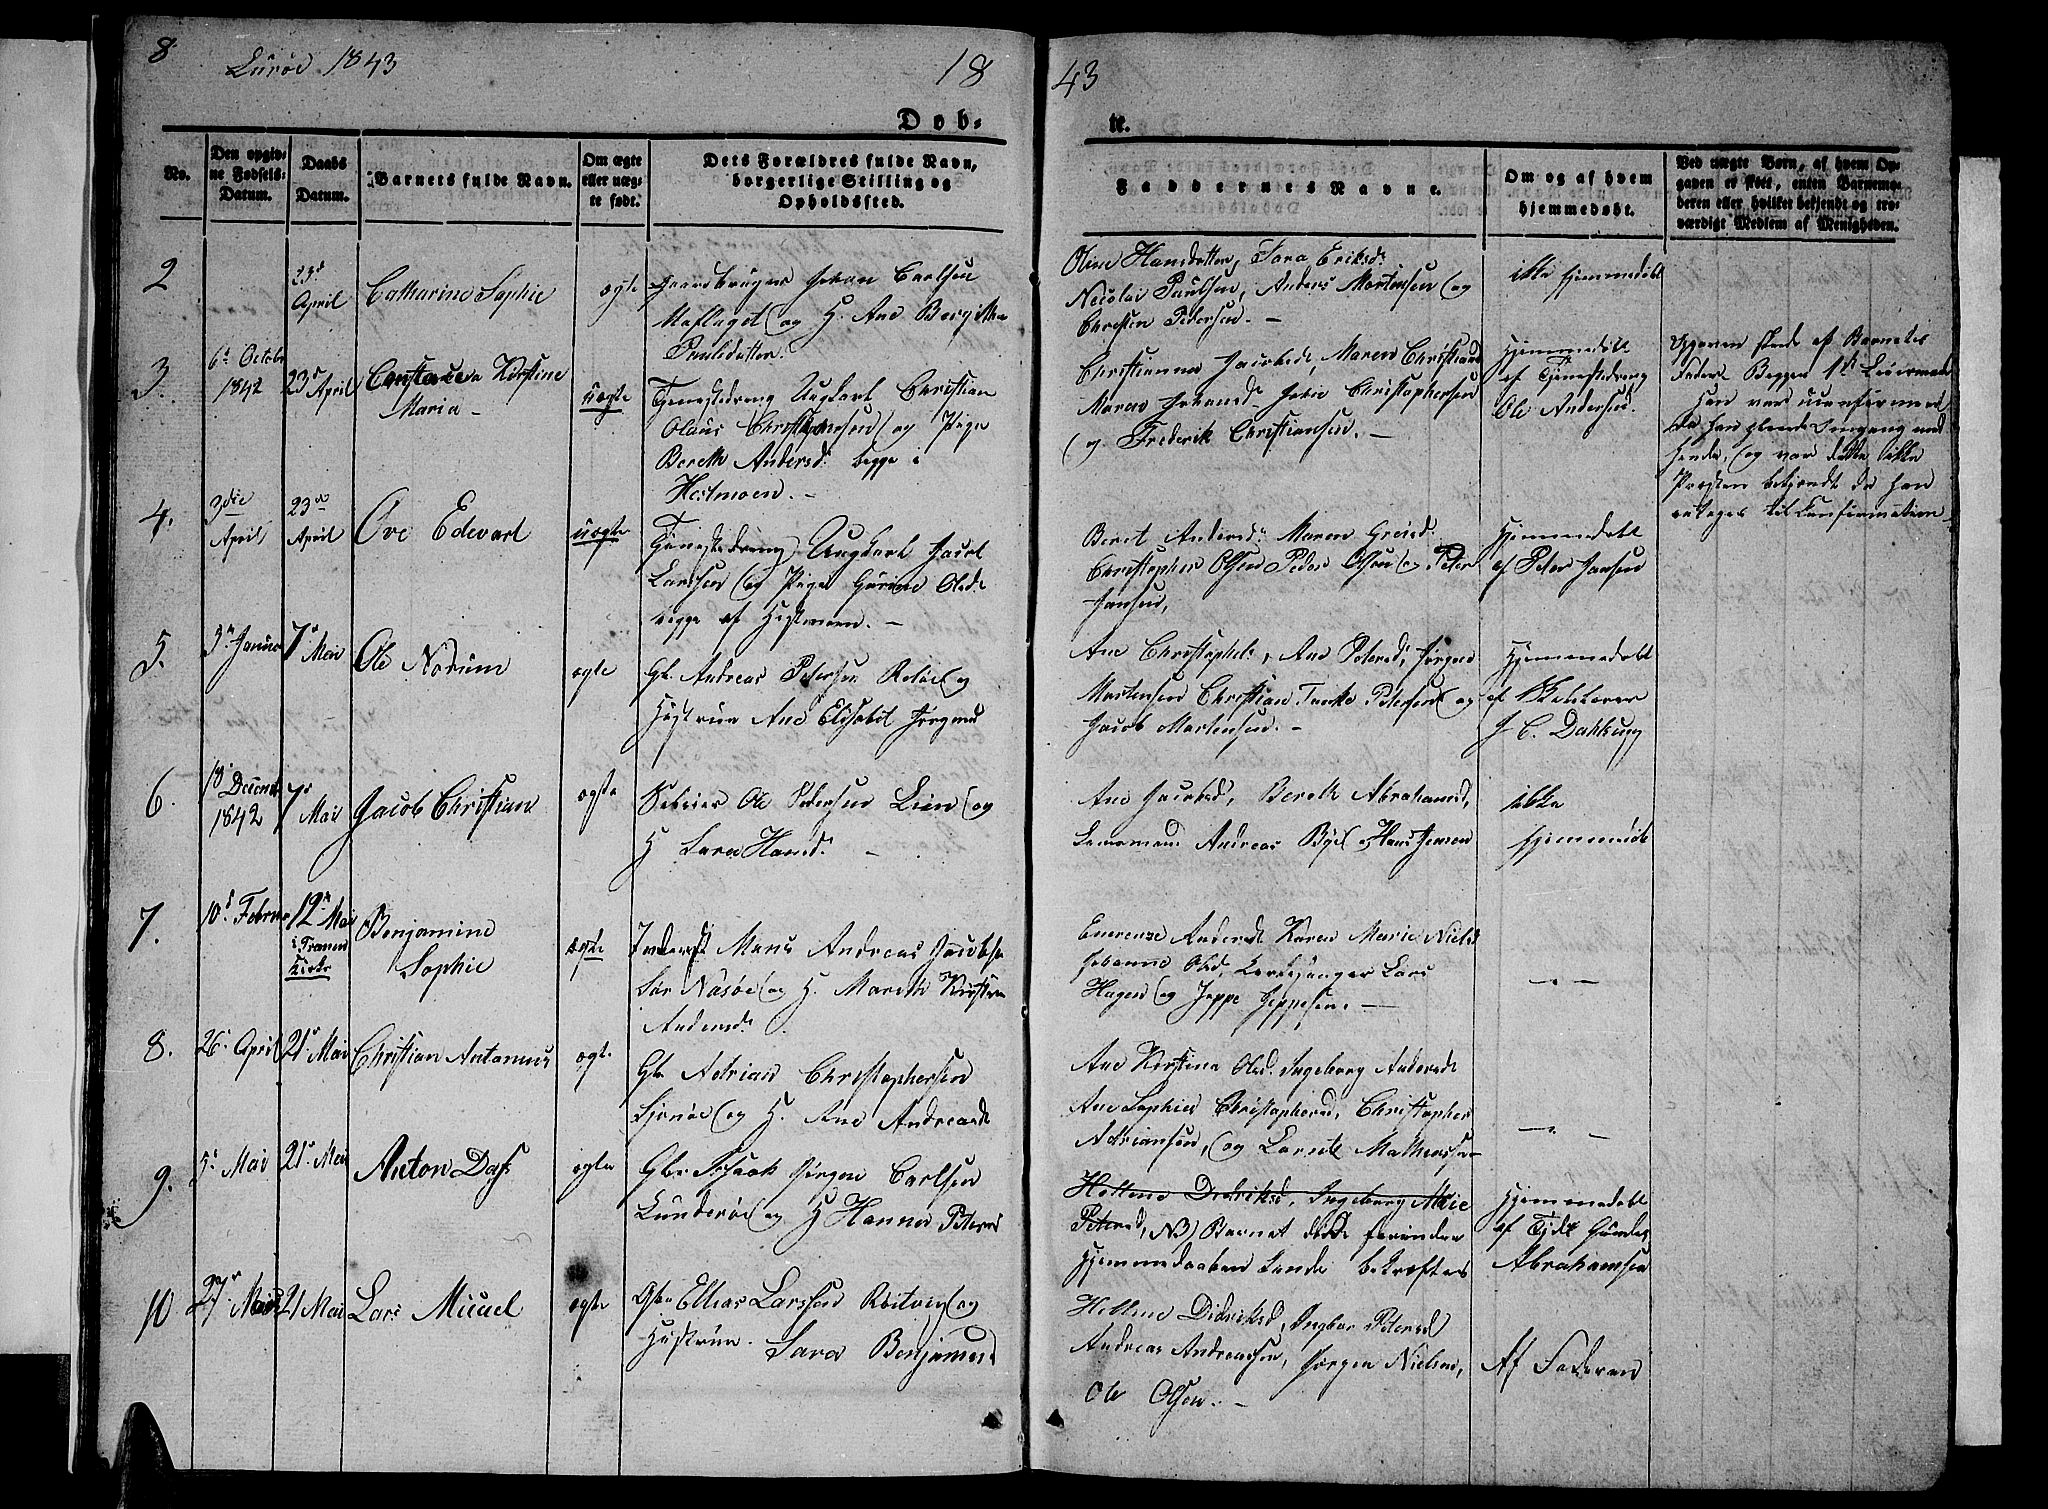 8
Lurøe 1843
18
43
Døb-
te.
No.
Den opgiv-
ne Fødsels-
Datum.
Daabs
Datum.
Barnets fulde Navn.
Om ægte
eller uæg-
te født.
Dets Forældres fulde Navn,
borgerlige Stilling og
Opholdssted.
Faddernes Navne.
Om og af hvem
hjemmedøbt.
Ved uægte Børn, af hvem Op-
gaven er skeet, enten Barnemo-
deren eller hvilket bekjendt og tro-
værdigt Medlem af Menigheden.
2
23d
April
Catharine Sophie
ægte
Gaardbruger Johan Carlsen
og H. Ane Bergitha
Paulsdatter.
Oline Hansdatter, Sara Eriksd.
Nicolai Paulsen, Anders Mortensen og
Christen Pedersen. —
ikke hjemmedøbt
3.
6te Octobr
1842
23de April
Constance Kirstine
Maria —
uægte
Tjenestedreng Ungkarl Christian
Olaus Christophersen og Pige
Bereth Andersd. begge i
Hestmoen. —
Christianna Jacobsd., Maren Christians
Maren Johansd. Christophersen
og Frederik Christiansen. —
Hjemmedøbt
af Tjenestedreng
Ole Andersen.
Opgaven skede af Barnets
Fader. Begges 1ste Leiermaal
Han var uconfirmeret
da han Omgang med
hende, og var dette ikke
Præsten bekjendt da han
antoges til Confirmation —
4.
3die
April
23de
April
Ove Edevart
uægte
Tjenestedreng Ungkarl Jacob
Larssen og Pige Gurine Olsd.
begge af Hestmoen. —
Beret Andersd. Maren Greisd.
Christopher Olsen Peder Olsen og Peter
Jansen,
Hjemmedøbt
af Peter Jansen
5.
3de Januar
7de Mai
Ole Nordum
ægte
Gbr. Andreas Petersen Reløe og
Hustrue Ane Elisabet Jørgens
Ane Christophd., Ane Petersd., Jørgen
Mortensen Christian Tanke Petersen og
Jacob Mortensen. —
Hjemmedøbt
af
J. C. Dahl
6.
18. Decemb
1842
7de
Mai
Jacob Christian
ægte
Ole Pedersen Lien og
H Sara Hansd. —
Ane Jacobsd., Bereth Abrahamsd.,
Lensmand Andreas Bye og Hans Jensen
ikke
hjemmedøbt
7.
10d. Februar
12te Mai
i Trænen
Kirke
Benjamine
Sophie
ægte
Inderst Mons Andreas Jacobsen
Sør Nasøe og H. Mareth Kirstin
Andersd.
Emerense Andersd. Karen Marie Nielsd
Johanne Olsd., Kirkesanger Lars
Hagen og Jeppe Jeppesen. —
— " —
8.
26. April
21de Mai
Christian Antonius
ægte
Gbr Adrian Christophersen
Sjonøe og H. Ane Andreasd
Ane Kirstina Olsd. Ingeborg Andersd
Ane Sophie Christophersd., Christopher
Adriansen, og Mathiassen
— " —
9.
5te Mai
21de Mai
Anton Dass
ægte
Gbr Isaak Jørgen Carlsen
Lunderøe og H Hanna Petersd
Hellene Didriksd, Ingeborg Marie
Petersd, NB) Barnet døde forinden
Hjemmedaaben kunde bekræftes
Hjemmedøbt
af
Abrahamsen
10
27de Marts
21 Mai
Lars Micael
ægte
Gbr Ellias Larssen og
Hustrue. Sara Benjamins.
Hellene Didriksd, Ingbor Petersd
Andreas Andreassen, Jørgen Nielsen,
Ole Olsen. —
Af Faderen